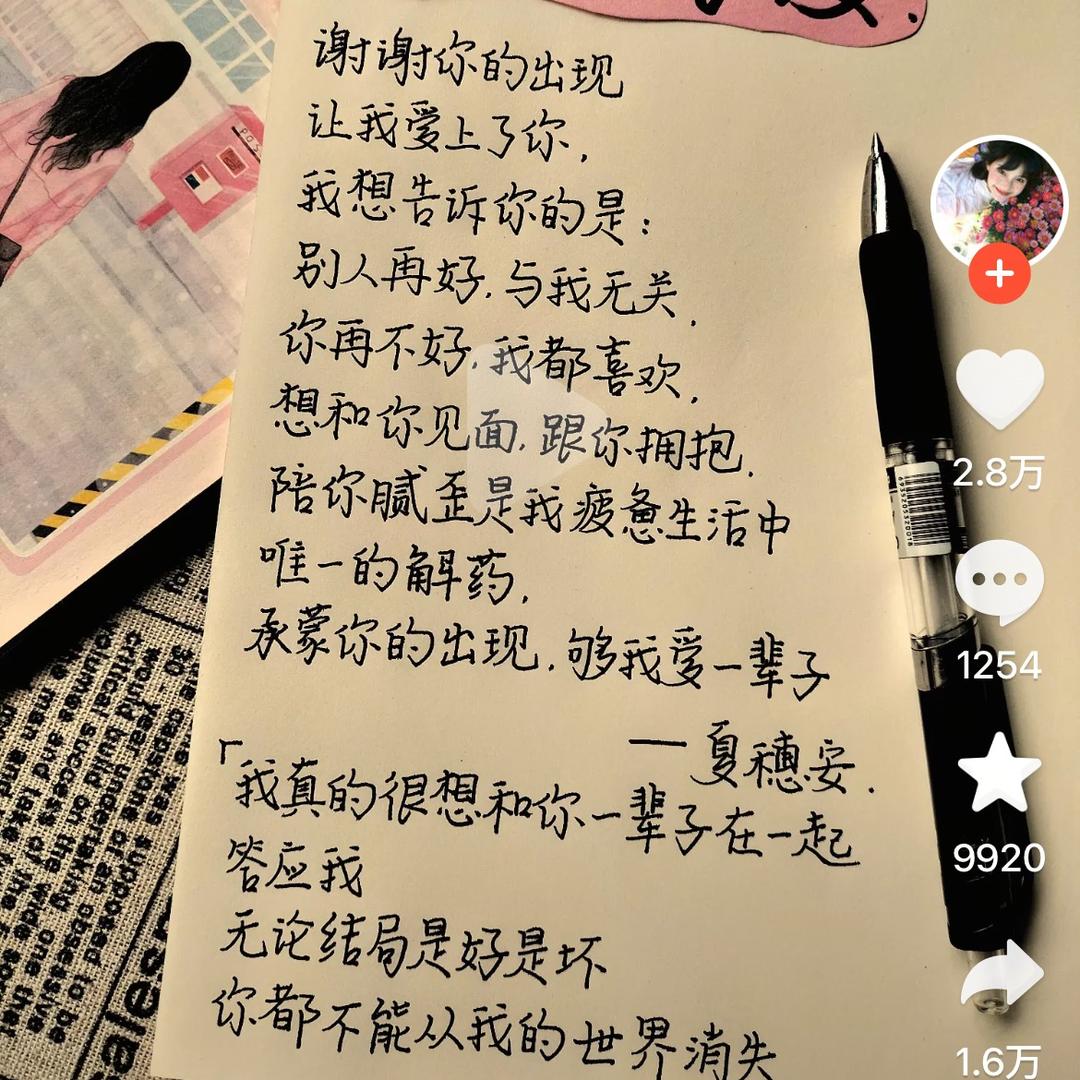 谢谢你的出现
让我爱上了你,
我想告诉你的是:
别人再好,与我无关.
你再不好,我都喜欢.
想和你见面,跟你拥抱.
陪你腻歪是我疲惫生活中
唯一的解药.
承蒙你的出现,够我爱一辈子
— 夏穗安.
「我真的很想和你一辈子在一起
答应我
无论结局是好是坏
你都不能从我的世界消失
2.8万
1254
9920
1.6万